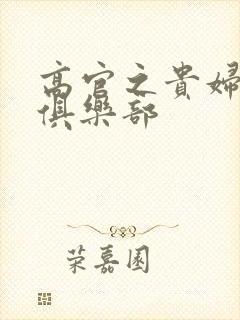 高官之貴婦
俱樂部
荣嘉園